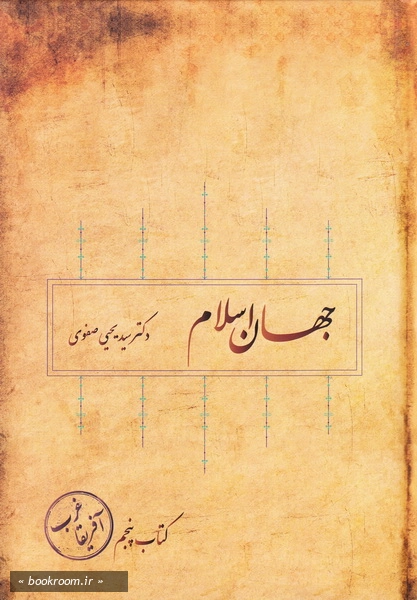 جهان اسلام
دکتر سید یحیی صفوی
کتاب پنجم
آفریقا غرب
« bookroom.ir »